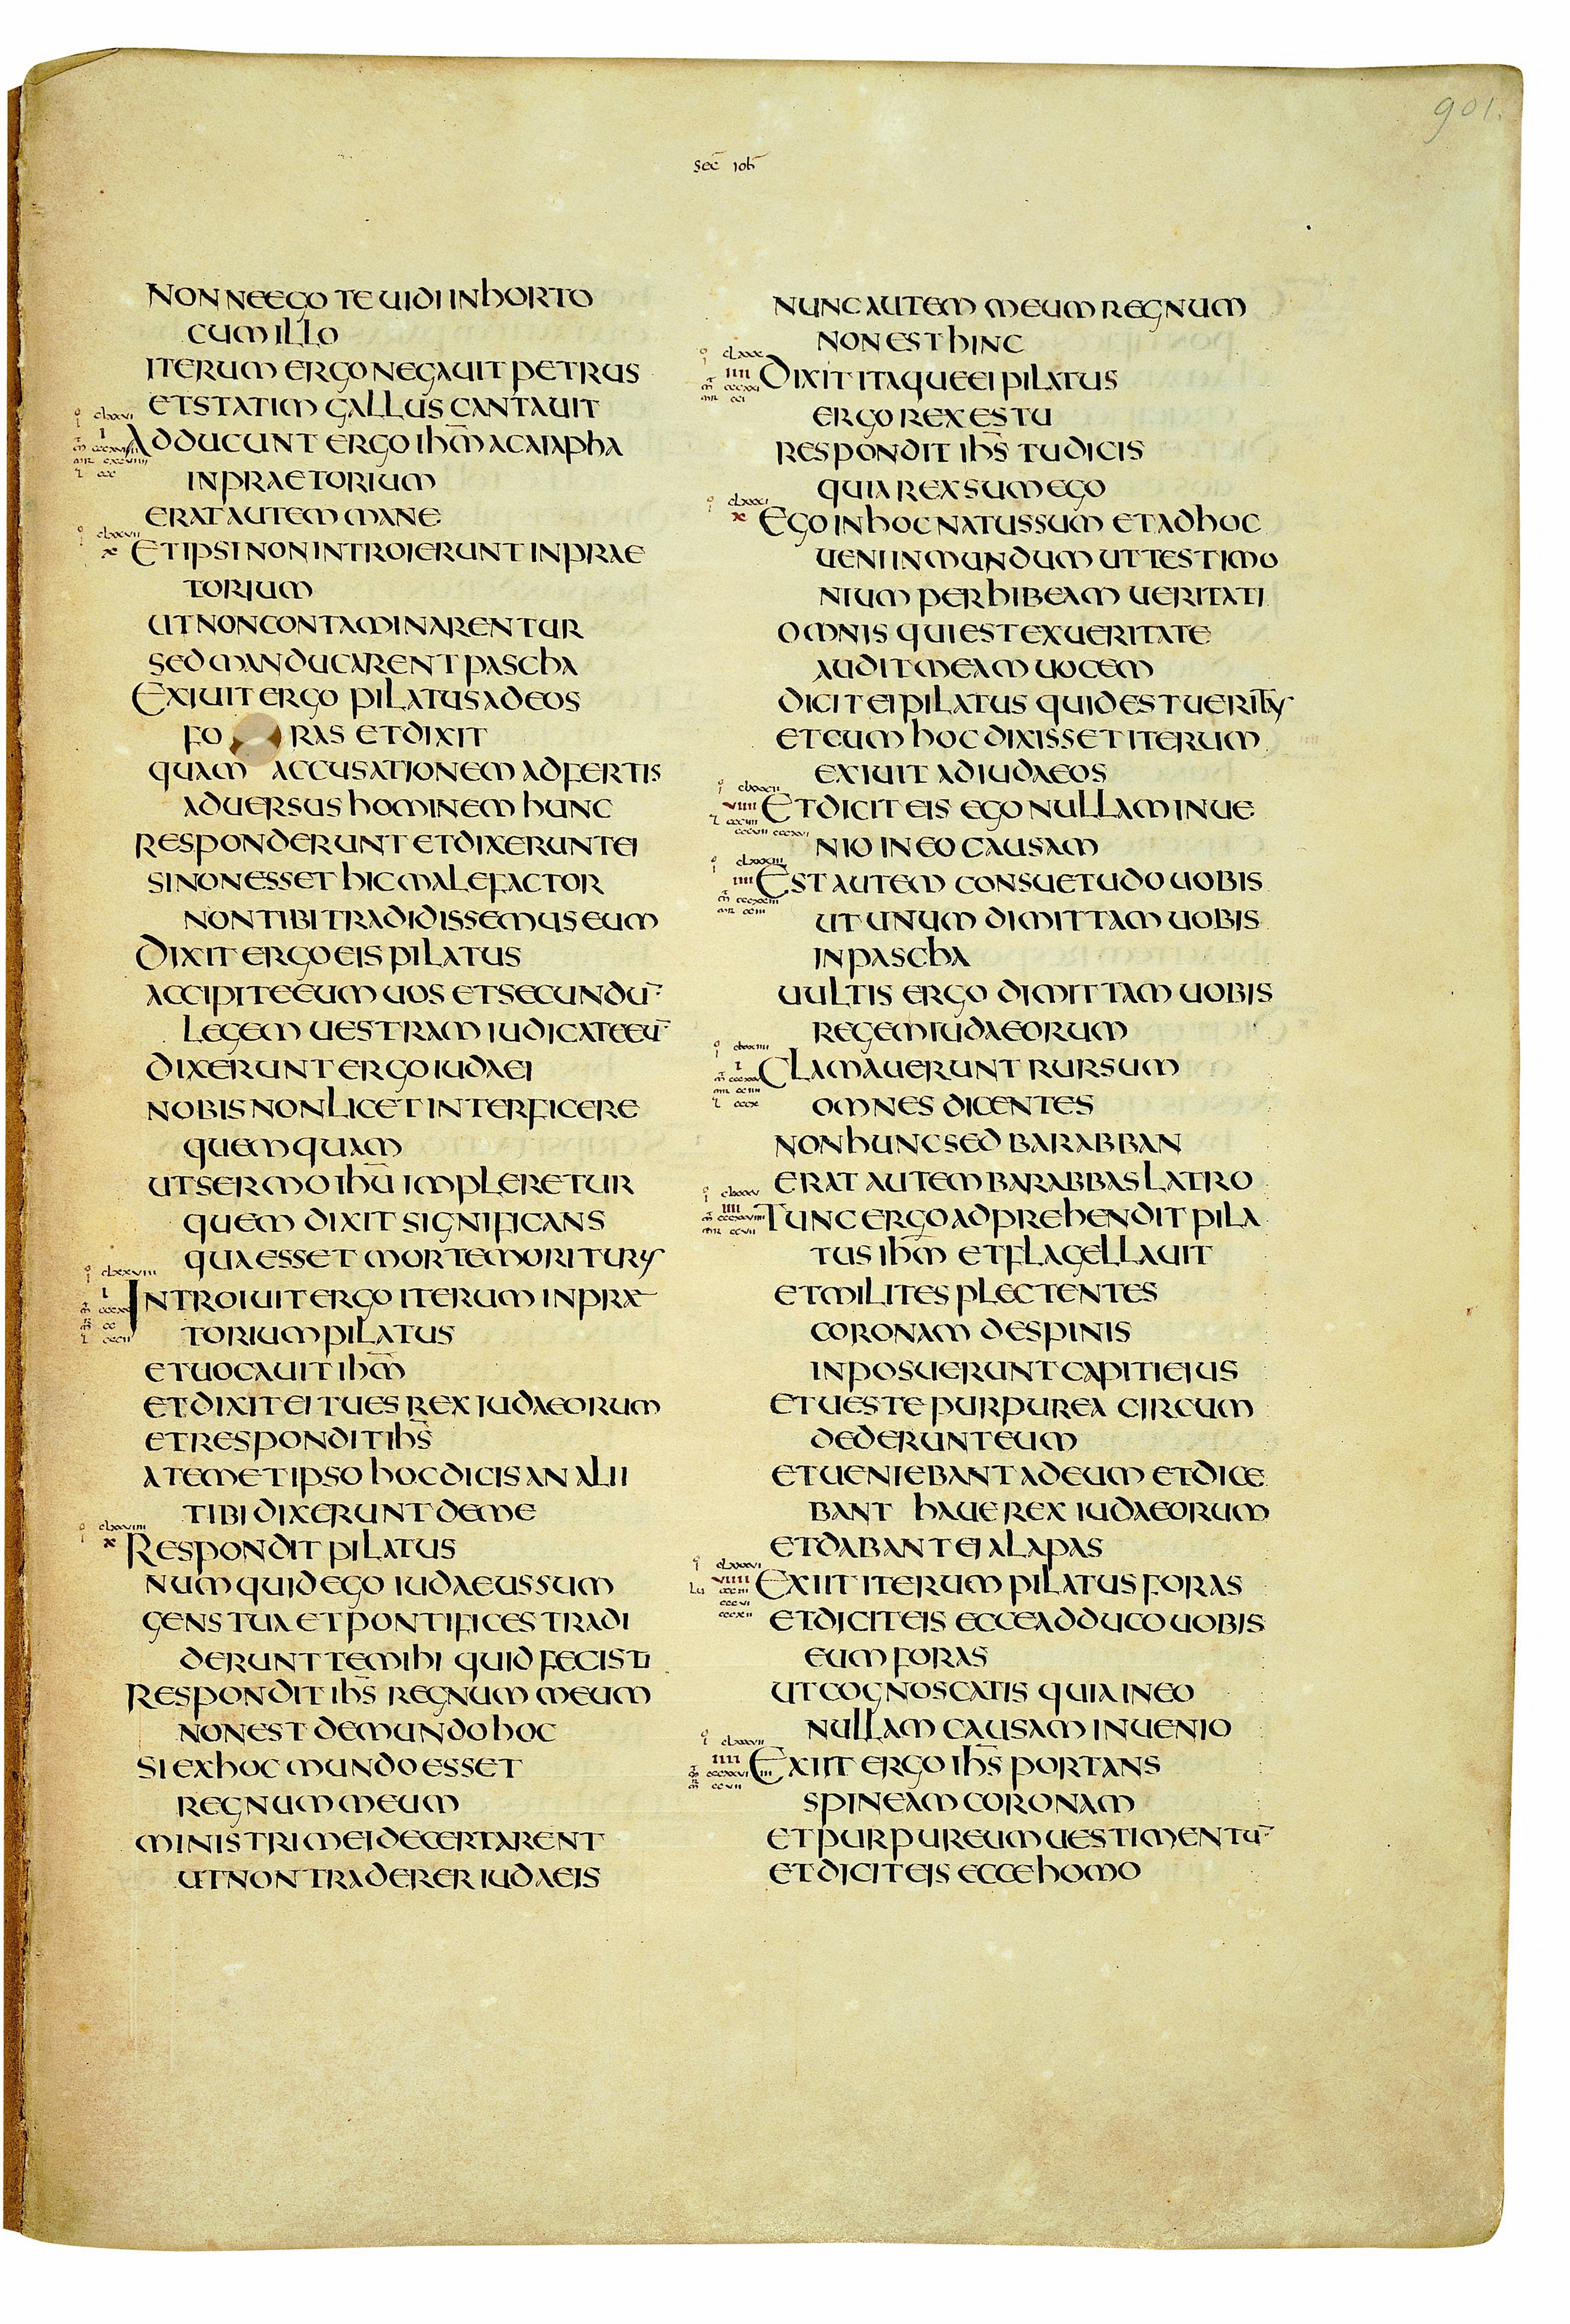 901.
Sec̄ ioh̄
NON NE EGO TE UIDI IN HORTO
CUM ILLO
ITERUM ERGO NEGAUIT PETRUS
ET STATIM GALLUS CANTAUIT
ADDUCUNT ERGO IHM̄ A CAIAPHA
IN PRAETORIUM
ERAT AUTEM MANE
ET IPSI NON INTROIERUNT IN PRAE
TORIUM
UT NON CONTAMINARENTUR
SED MANDUCARENT PASCHA
EXIUIT ERGO PILATUS AD EOS
FO RAS ET DIXIT
QUAM ACCUSATIONEM ADFERTIS
ADUERSUS HOMINEM HUNC
RESPONDERUNT ET DIXERUNT EI
SI NON ESSET HIC MALEFACTOR
NON TIBI TRADIDISSEMUS EUM
DIXIT ERGO EIS PILATUS
ACCIPITE EUM UOS ET SECUNDŪ
LEGEM UESTRAM IUDICATE EŪ
DIXERUNT ERGO IUDAEI
NOBIS NON LICET INTERFICERE
QUEMQUAM
UT SERMO IHŪ IMPLERETUR
QUEM DIXIT SIGNIFICANS
QUA ESSET MORTE MORITURUS
INTROIUIT ERGO ITERUM IN PRAE
TORIUM PILATUS
ET UOCAUIT IHM̄
ET DIXIT EI TU ES REX IUDAEORUM
ET RESPONDIT IHS̄
A TEMET IPSO HOC DICIS AN ALII
TIBI DIXERUNT DE ME
RESPONDIT PILATUS
NUMQUID EGO IUDAEUS SUM
GENS TUA ET PONTIFICES TRADI
DERUNT TE MIHI QUID FECISTI
RESPONDIT IHS̄ REGNUM MEUM
NON EST DE MUNDO HOC
SI EX HOC MUNDO ESSET
REGNUM MEUM
MINISTRI MEI DECERTARENT
UT NON TRADERER IUDAEIS
NUNC AUTEM MEUM REGNUM
NON EST HINC
DIXIT ITAQUE EI PILATUS
ERGO REX ES TU
RESPONDIT IHS̄ TU DICIS
QUIA REX SUM EGO
EGO IN HOC NATUS SUM ET AD HOC
UENI IN MUNDUM UT TESTIMO
NIUM PERHIBEAM UERITATI
OMNIS QUI EST EX UERITATE
AUDIT MEAM UOCEM
DICIT EI PILATUS QUID EST UERITAS
ET CUM HOC DIXISSET ITERUM
EXIUIT AD IUDAEOS
ET DICIT EIS EGO NULLAM INUE
NIO IN EO CAUSAM
EST AUTEM CONSUETUDO UOBIS
UT UNUM DIMITTAM UOBIS
IN PASCHA
UULTIS ERGO DIMITTAM UOBIS
REGEM IUDAEORUM
CLAMAUERUNT RURSUM
OMNES DICENTES
NON HUNC SED BARABBAN
ERAT AUTEM BARABBAS LATRO
TUNC ERGO ADPREHENDIT PILA
TUS IHM̄ ET FLAGELLAUIT
ET MILITES PLECTENTES
CORONAM DE SPINIS
INPOSUERUNT CAPITI EIUS
ET UESTE PURPUREA CIRCUM
DEDERUNT EUM
ET UENIEBANT AD EUM ET DICE
BANT HAUE REX IUDAEORUM
ET DABANT EI ALAPAS
EXIIT ITERUM PILATUS FORAS
ET DICIT EIS ECCE ADDUCO UOBIS
EUM FORAS
UT COGNOSCATIS QUIA IN EO
NULLAM CAUSAM INUENIO
EXIIT ERGO IHS̄ PORTANS
SPINEAM CORONAM
ET PURPUREUM UESTIMENTŪ
ET DICIT EIS ECCE HOMO